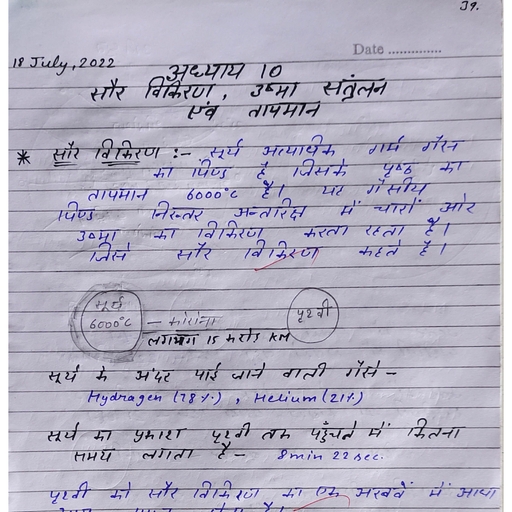 39.
Date ..............
18 July, 2022
अध्याय 10
सौर विकिरण, उष्मा संतुलन
एवं तापमान
* सौर विकिरण :- सूर्य अत्याधिक गर्म गैस
का पिण्ड है जिसके पृष्ठ का
तापमान 6000°C है। यह गैसीय
पिण्ड निरन्तर अन्तरिक्ष में चारों ओर
उष्मा का विकिरण करता रहता है।
जिसे सौर विकिरण कहते है।
सूर्य
6000°C
पृथ्वी
लगभग 15 करोड़ KM
सूर्य के अंदर पाई जाने वाली गैसे -
Hydragen (78%), Helium (21%)
सूर्य का प्रकाश पृथ्वी तक पहुँचने में कितना
समय लगता है - 8min 22 sec.
पृथ्वी को सौर विकिरण का एक अरबवें में आधा